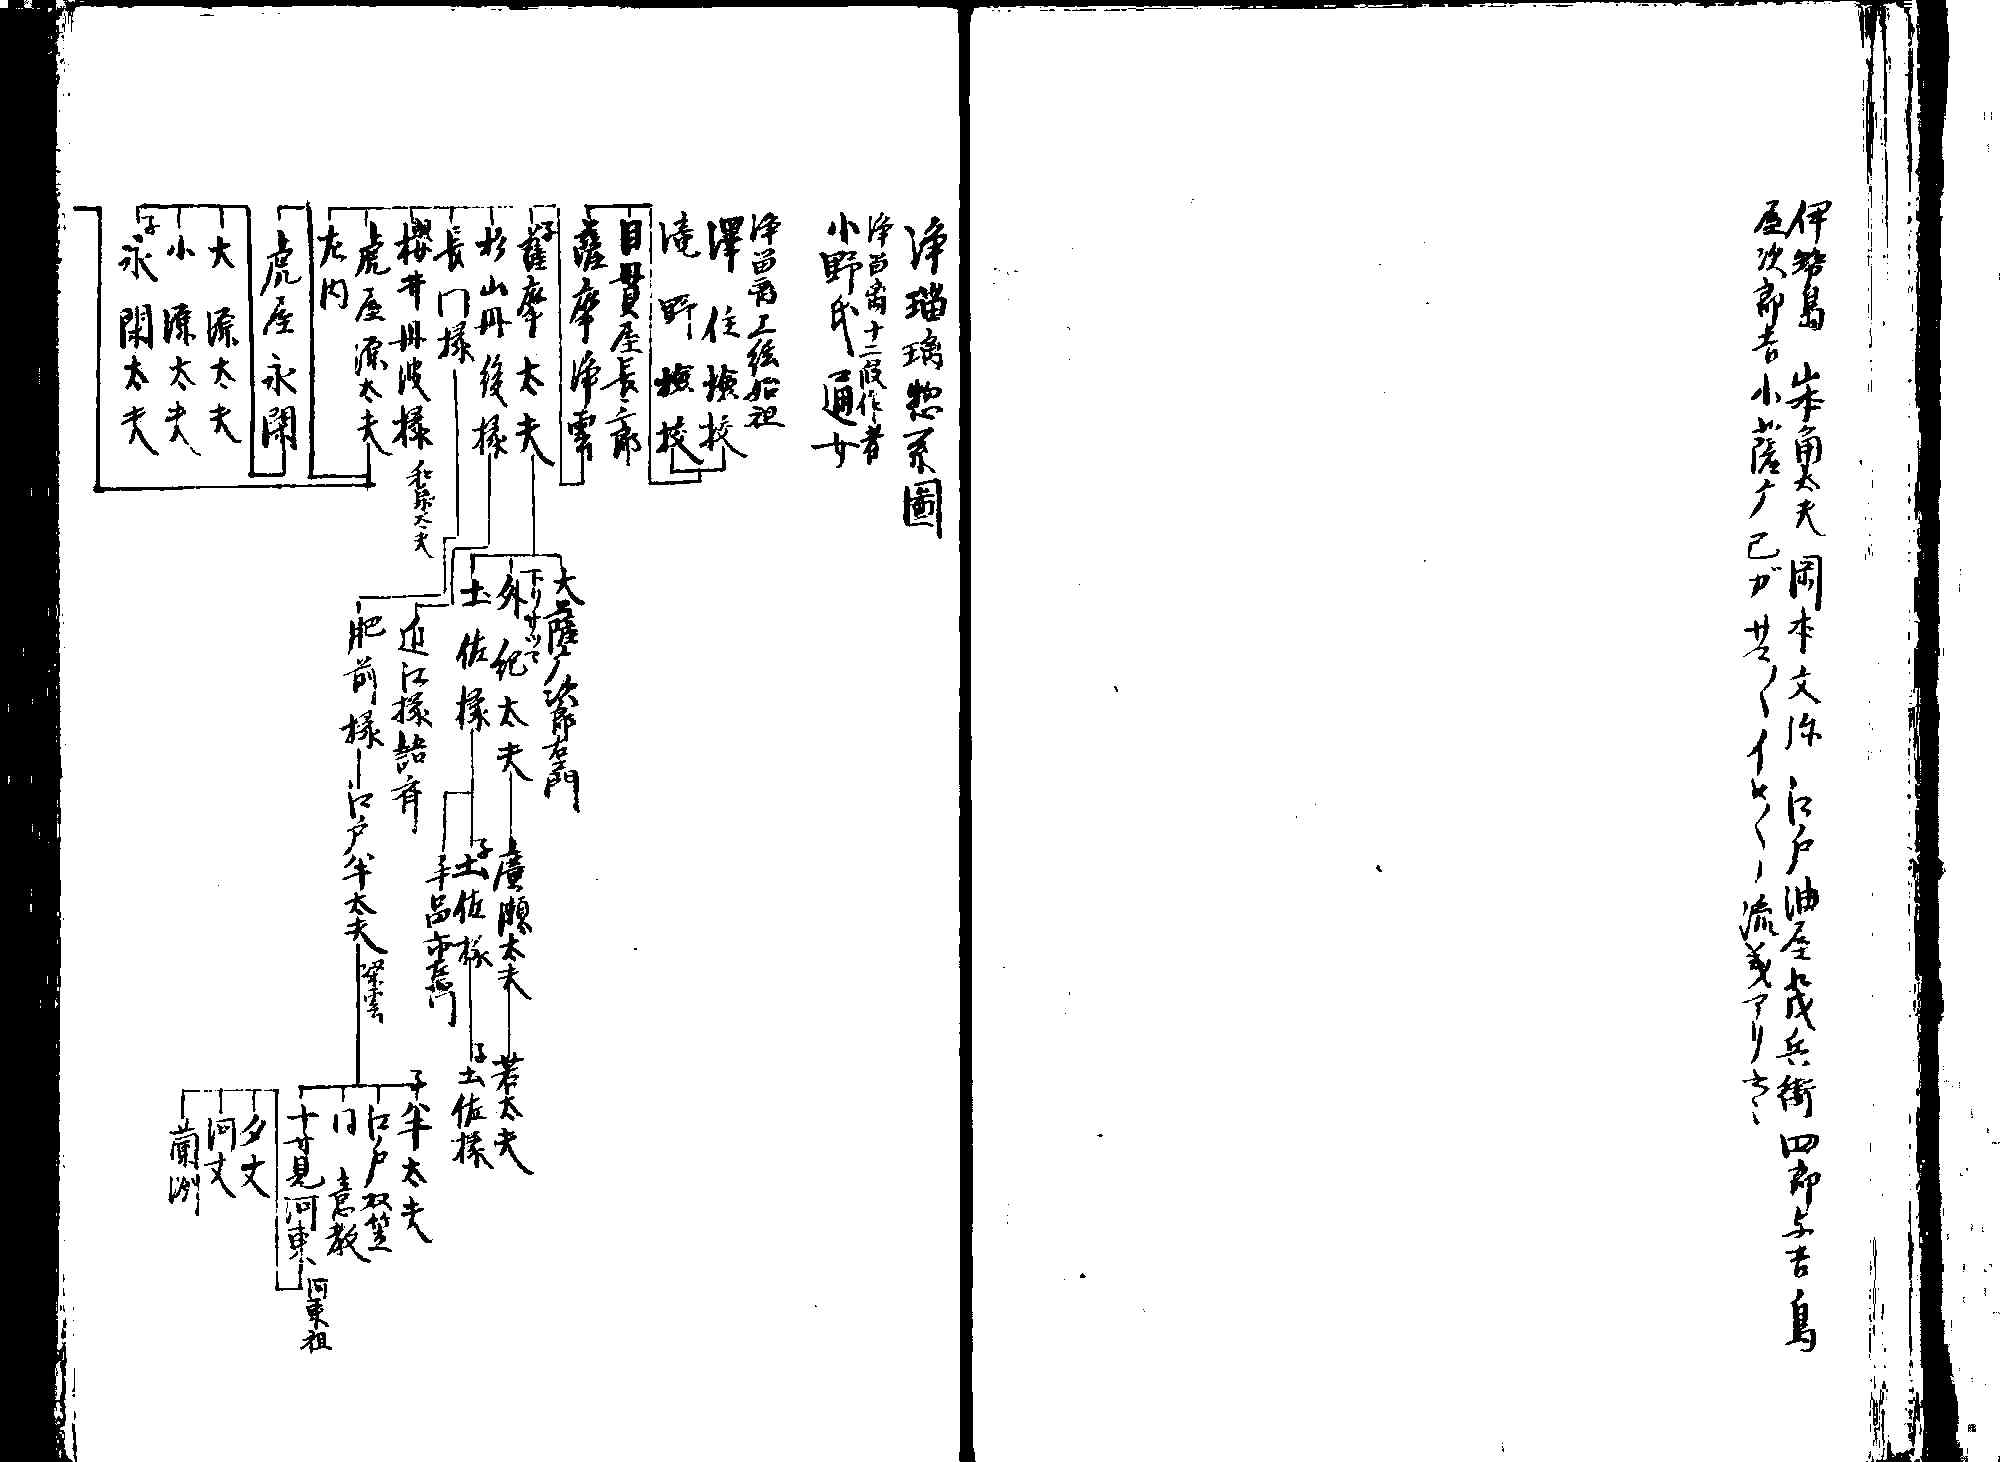 伊勢島 山本角太夫 岡本文弥 江戸油屋茂兵衛 四郎与吉 鳥
屋次郎吉 小薩广 己ガ サマ〱 イセ〱ノ流義アリ
浄瑠璃惣系圖
浄留離十二段作者
小野氏通女
浄留离工絃始祖
澤住撿校
滝野撿校
目貫屋長三郎
薩摩浄雲
子 薩摩太夫
杉山丹後掾
長門掾
櫻井丹波掾 和泉太夫
虎屋源太夫
左内
虎屋永閑
大源太夫
小源太夫
子 永閑太夫
大薩广次郎右衛門
下リサツマ
外紀太夫
土佐掾
近江掾語斉
肥前掾
江戸半太夫 梁雲
廣瀬太夫
子 土佐掾
手品市左衛門
若太夫
子 土佐掾
子 半太夫
江戸双笠
同 意教
十寸見河東 河東祖
夕丈
河丈
蘭洲